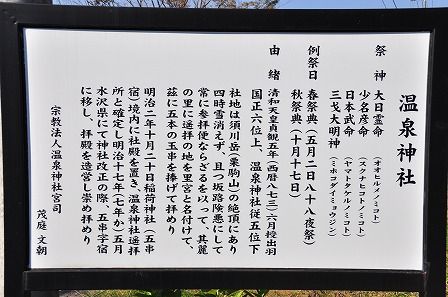 温泉神社
祭神 大日霊命(オオヒルメノミコト)
少名彦命(スクナヒコナノミコト)
日本武命(ヤマトタケルノミコト)
三戈大明神(ミホコダイミョウジン)
例祭日 春祭典(五月二日八十八夜祭)
秋祭典(十月十七日)
由緒 清和天皇貞観五年(西暦八七三)六月授出羽
国正六位上、温泉神社従五位下
社地は須川岳(栗駒山)の絶頂にあり
四時雪消えず、且つ坂路険悪にして
常に参拝便ならざるを以って、其麓
の里に遥拝の地を里宮と名付けて、
茲に五本の玉串を捧げて拝めり
明治二年十月二十日稲荷神社(五串
宿)境内に社殿を置き、温泉神社遥拝
所と確定し明治十七年(七年か)五月
水沢県にて神社改正の際、五串字宿
に移し、拝殿を造営し崇め拝めり
宗教法人温泉神社宮司
茂庭文朝